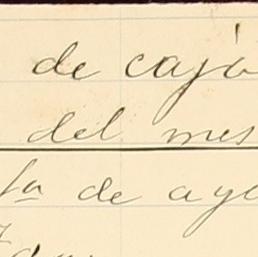 de caja
del mes
fa de aye